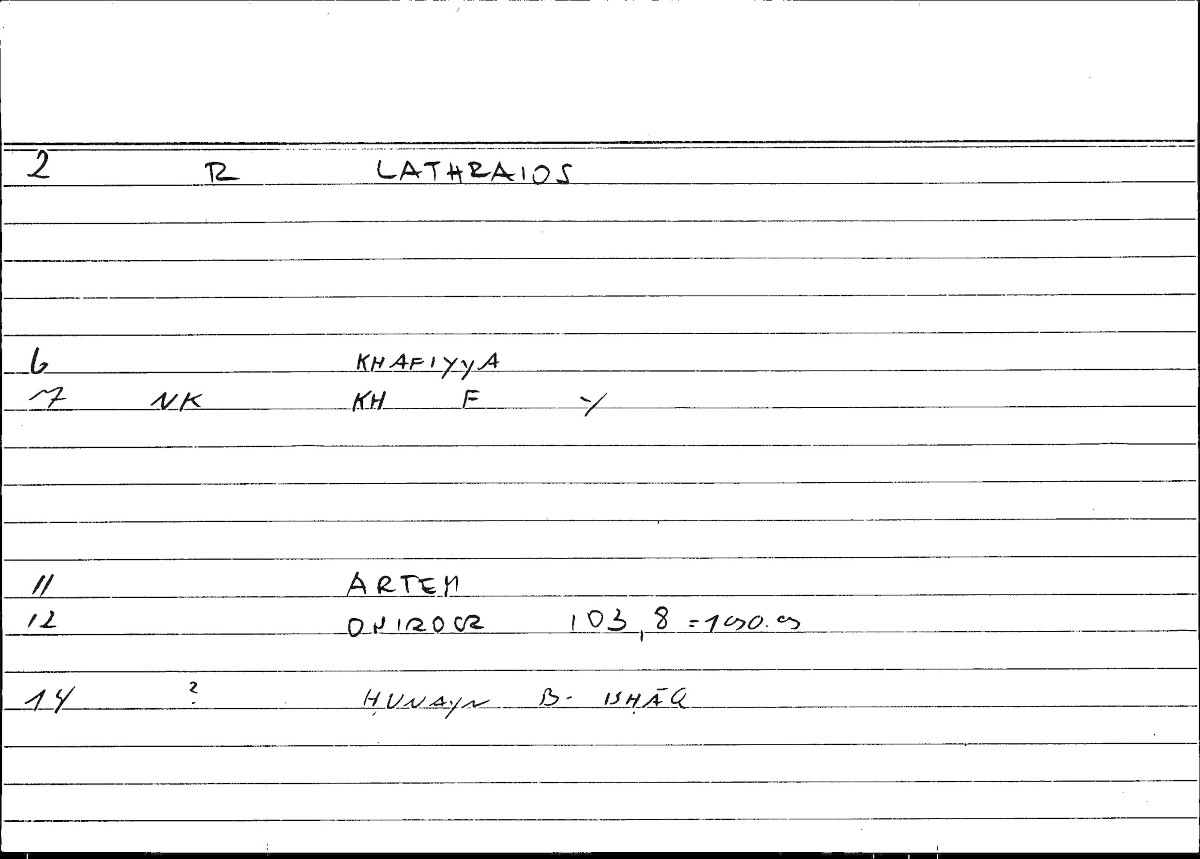 2 R LATHRAIOS
6 KHAFIYYA
7 NK KH F Y
11 ARTEM
12 ONIROCR 103,8 =190.9
14 ? ḤUNAYN B. ISḤĀQ